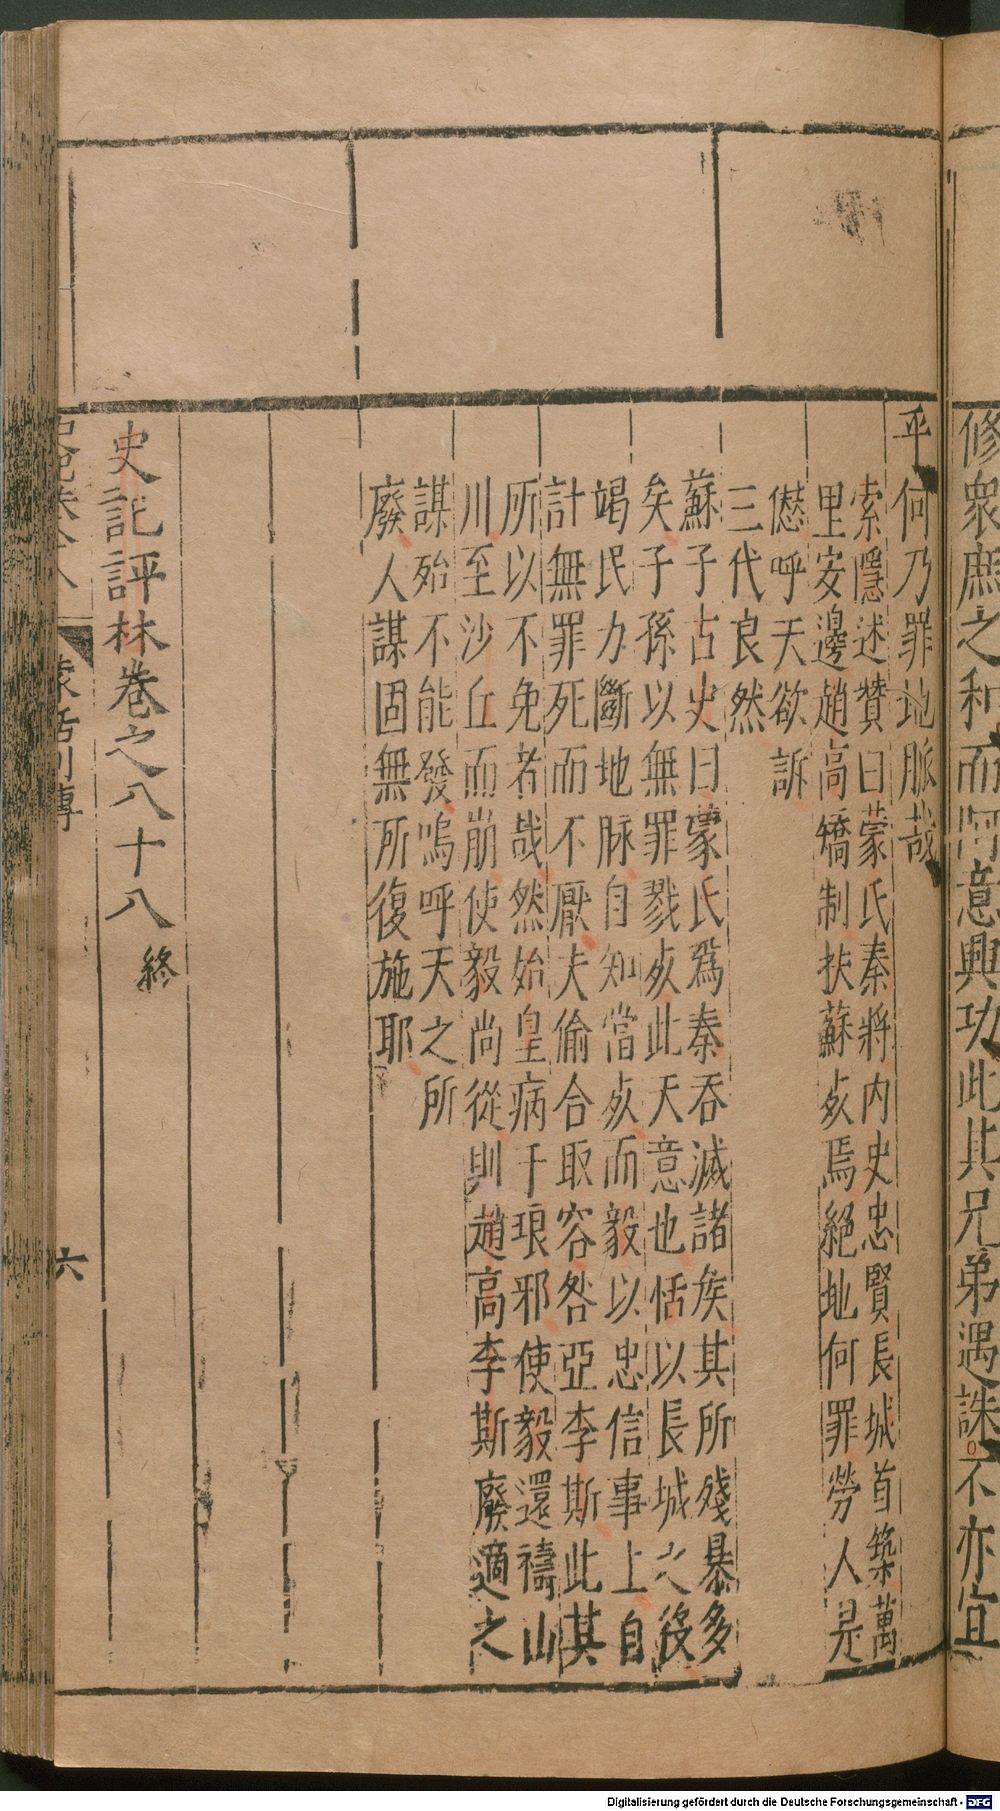 修衆庶之和而阿意興功此其兄弟遇誅不亦宜
乎何乃罪地脈哉
索隱述贊曰蒙氏秦將内史忠賢長城首築萬
里安邊趙高矯制扶蘇死焉絕地何罪勞人是
𠎝呼天欲訴
三代良然
蘇子古史曰蒙氏爲秦吞滅諸侯其所殘暴多
矣子孫以無罪戮死此天意也恬以長城之役
竭民力斷地脉自知當死而毅以忠信事上自
計無罪死而不厭夫偷合取容咎亞李斯此其
所以不免者哉然始皇病于琅邪使毅還禱山
川至沙丘而崩使毅尚從則趙高李斯廢適之
謀殆不能發嗚呼天之所
廢人謀固無所復施耶
史記評林卷之八十八終
史記卷八十八 蒙恬列傳 六
Digitalisierung gefördert durch die Deutsche Forschungsgemeinschaft - DFG